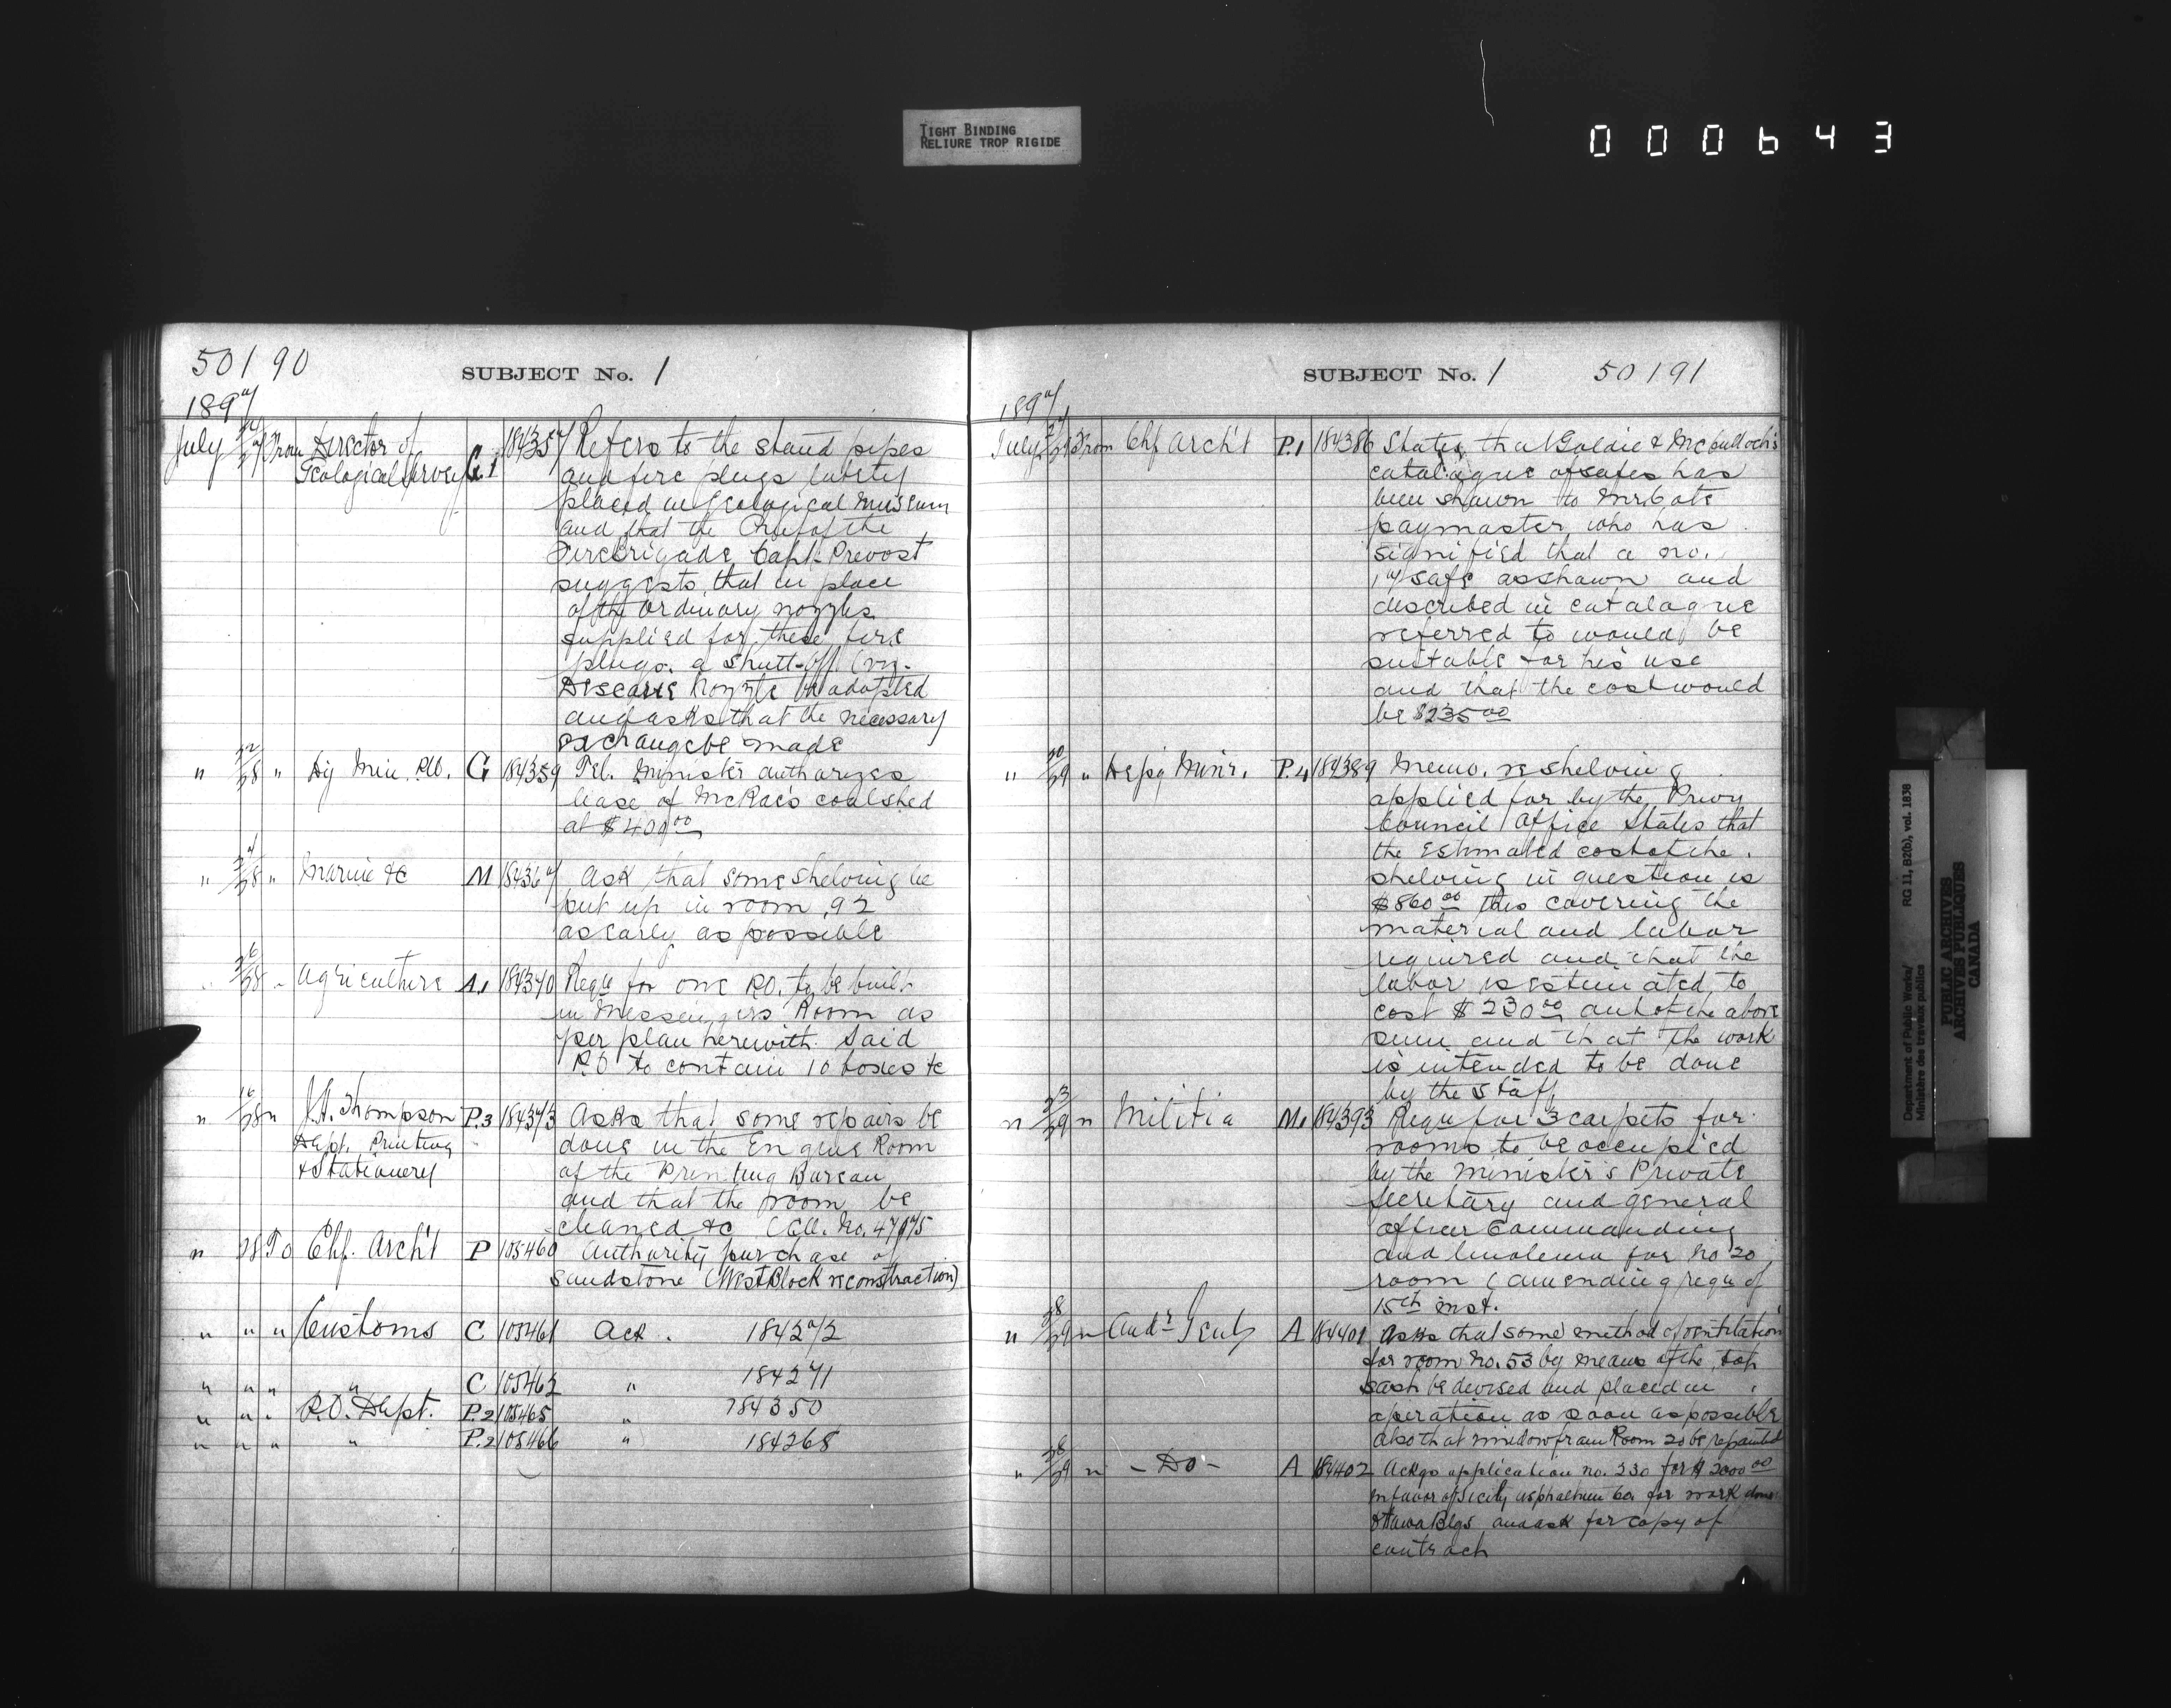 TIGHT BINDING
RELIURE TROP RIGIDE
000643
50190
SUBJECT No. 1
1897
July 27 From Director of Geological Survey G.1 184357 Refers to the stand pipes
and fire plugs lately
placed in Geological Museum
and that the Chief of the
Fire brigade Capt. Prevost
suggests that in place
of the ordinary nozzles
supplied for these fire
plugs, a shutt-off
nozzle be adopted
and asks that the necessary
exchange be made
" 22/28 " Dy Min. P.W. G 184359 Tel. Minister authorizes
lease of McRae's coalshed
at $400 00
" 27/28 " Marine &c M 184367 Ask that some shelving be
put up in room 92
as early as possible
26/28 " Agriculture A.1 184370 Requ for one P.O. to be built
in Messengers Room as
per plan herewith. Said
P.O to contain 10 boxes &c
" 16/28 " J.A. Thompson P.3 184373 Asks that some repairs be
Dept. Printing done in the Engine Room
& Stationery of the Printing Bureau
and that the room be
cleaned &c (Cll. No. 47075
" 28 To Chf. Arch't P 105460 Authority purchase of
sandstone (West Block reconstruction)
" " " Customs C 105461 Ack. 184272
" " " " C 105462 " 184271
" " " P.O. Dept. P.2 105465 " 184350
" " " " P.2 105466 " 184268
SUBJECT No. 1 50191
1897
July 27/29 From Chf Arch't P.1 184386 States that Goldie & McCulloch's
catalogue of safes has
been shown to Mr Cote
paymaster, who has
signified that a no.
17 safe as shown and
described in catalogue
referred to would be
suitable for his use
and that the cost would
be $235 00
" 20/29 " Depy Minr. P.4 184389 Memo. re shelving
applied for by the Privy
Council Office States that
the estimated cost of the
shelving in question is
$860 00 this covering the
material and labor
required and that the
labor is estimated to
cost $230 00 out of the above
sum and that the work
is intended to be done
by the staff
" 23/29 " Militia M.1 184393 Requ for 3 carpets for
rooms to be occupied
by the Minister's Private
Secretary and general
officer Commanding
and linoleum for No 20
room (amending requ of
15th inst.
" 28/29 " Audr Genl A 184401 Asks that some method of ventilation
for room No. 53 by means of the top
sash be devised and placed in
operation as soon as possible
also that window frame Room 20 be repainted
" 28/29 " - Do - A 184402 Ackgs application no. 230 for $2000 00
in favor of Sicily Asphaltum Co. for work done
Ottawa Blgs and ask for copy of
contract
Department of Public Works/
Ministère des travaux publics
RG 11, B2(b), vol. 1838
PUBLIC ARCHIVES
ARCHIVES PUBLIQUES
CANADA